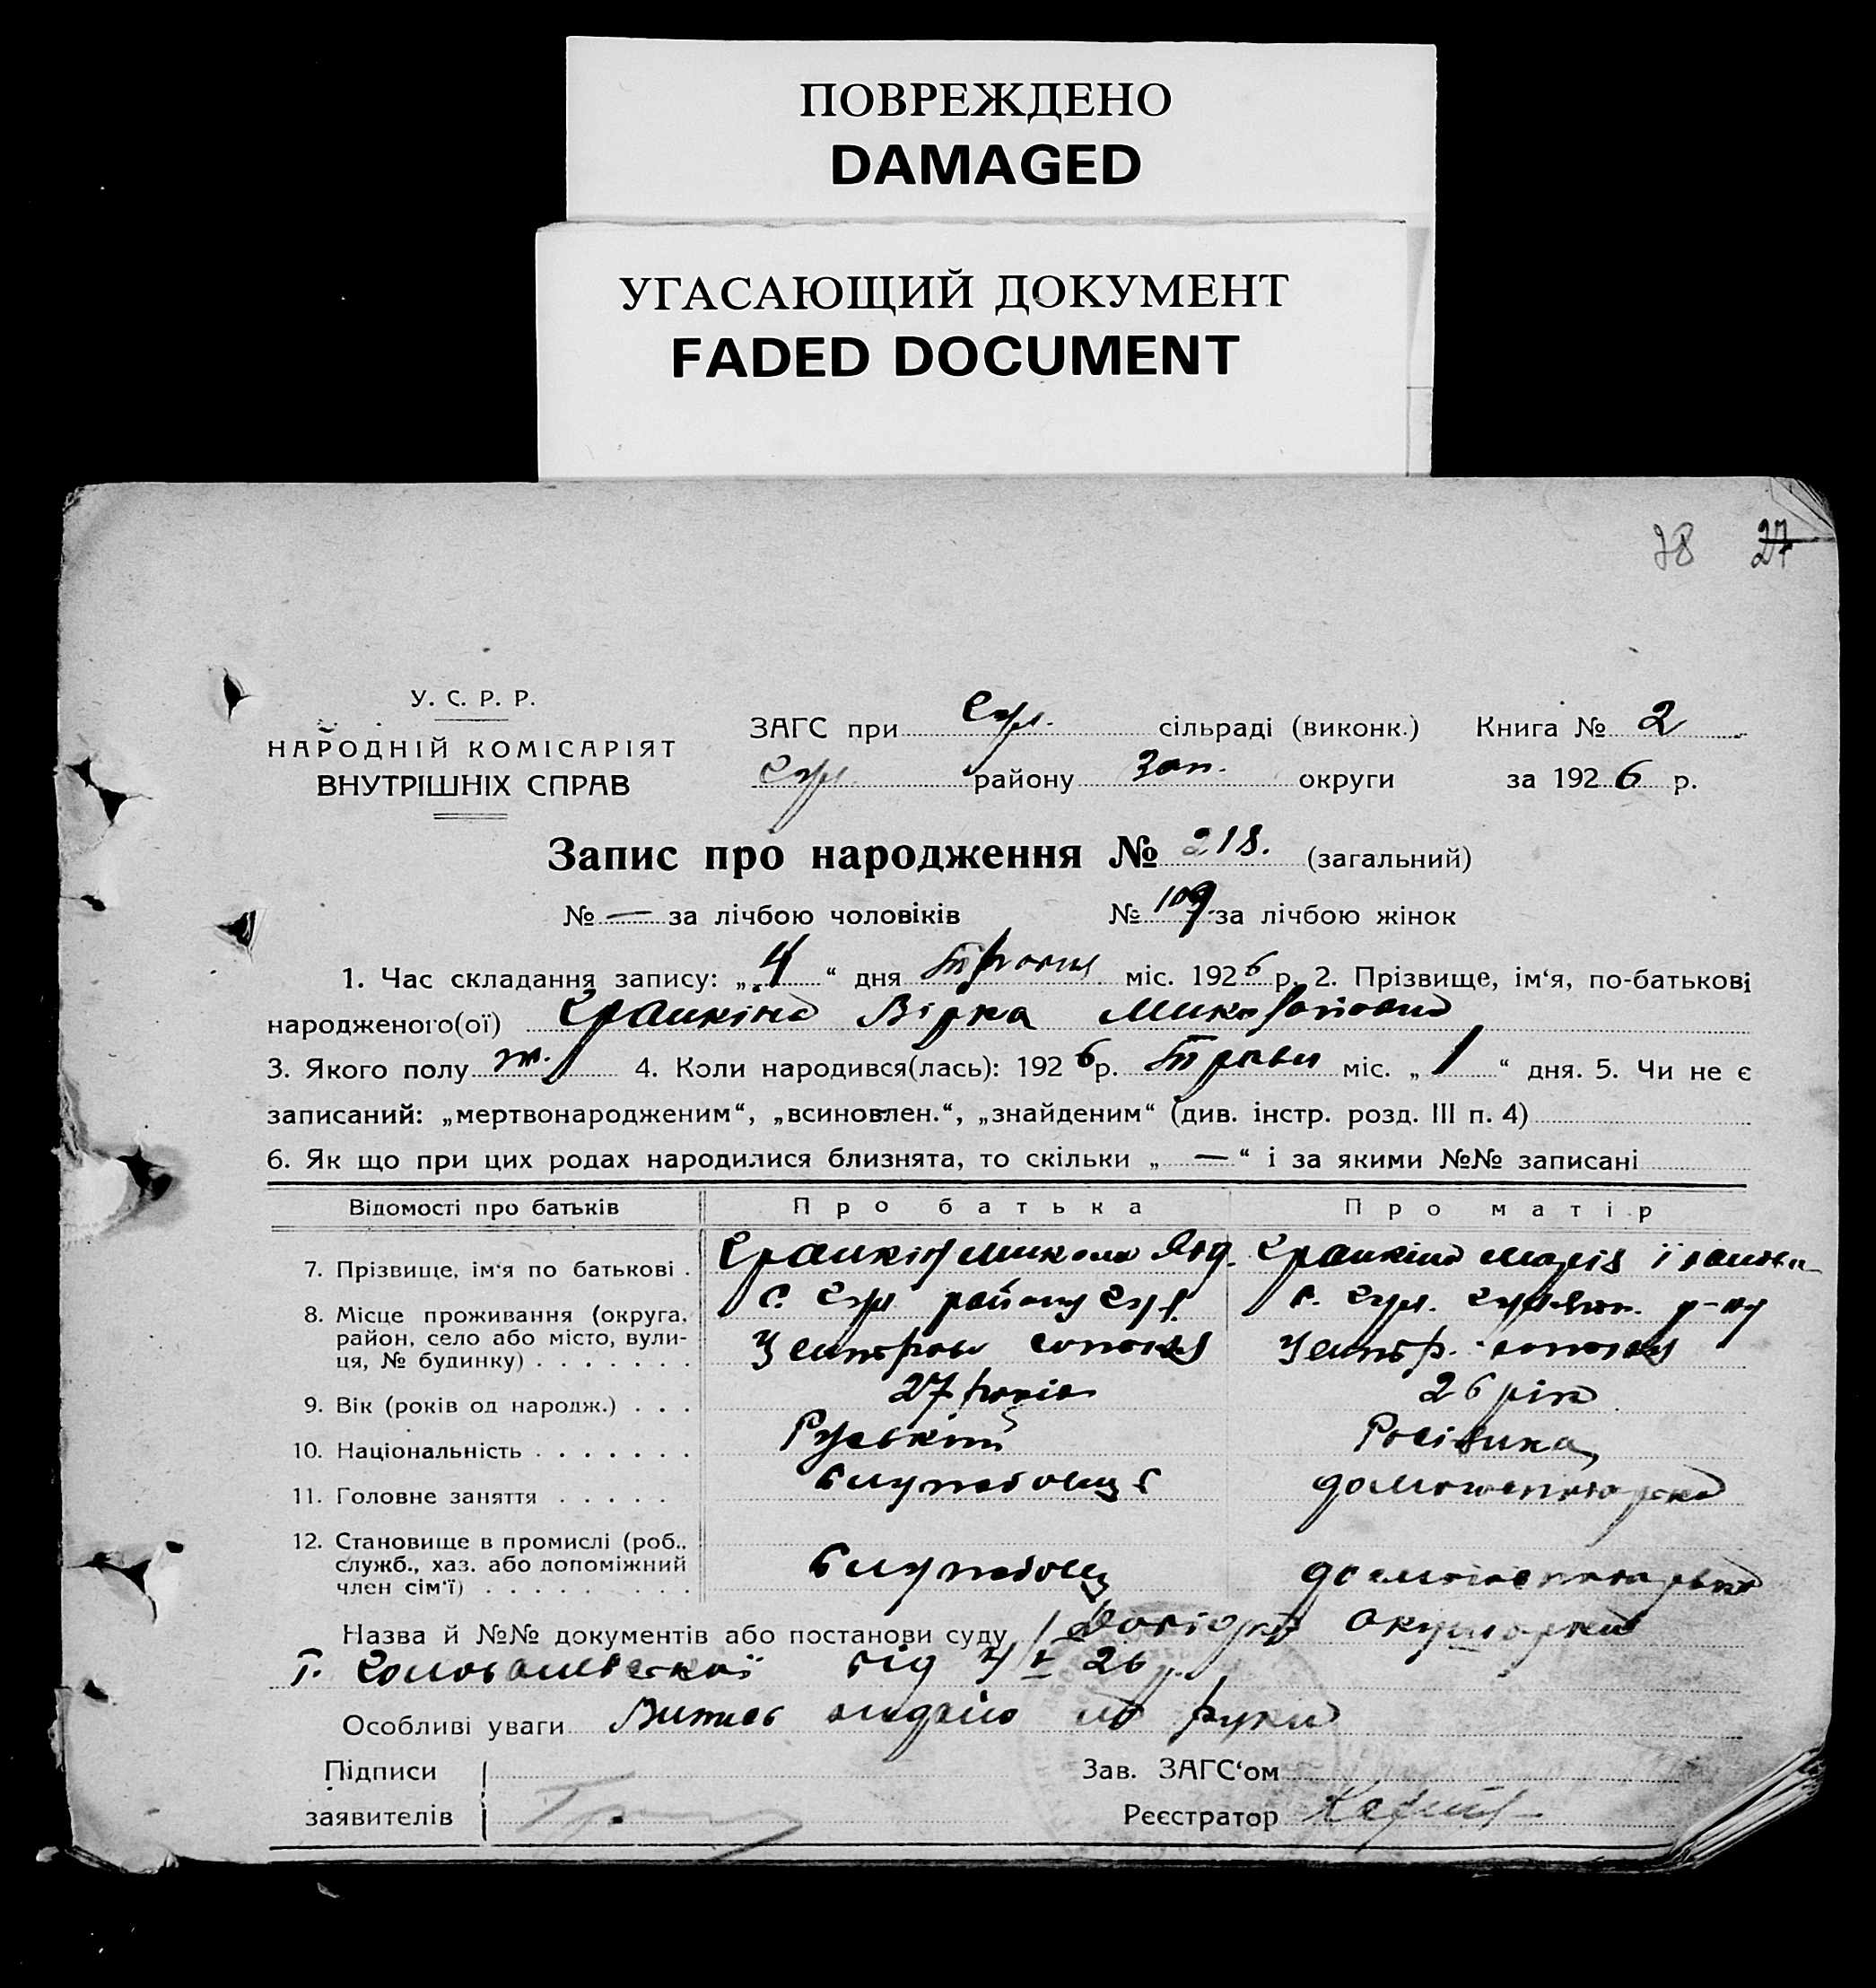 ПОВРЕЖДЕНО
DAMAGED
УГАСАЮЩИЙ ДОКУМЕНТ
FADED DOCUMENT
28 27
У. С. Р. Р.
НАРОДНІЙ КОМІСАРІЯТ
ВНУТРІШНІХ СПРАВ
ЗАГС при сільраді (виконк.) Книга № 2
району Зап. округи за 1926 р.
Запис про народження № 218. (загальний)
№ — за лічбою чоловіків № 109 за лічбою жінок
1. Час складання запису: „4“ дня травня міс. 1926 р. 2. Прізвище, ім‘я, по-батькові
народженого(ої) Вірка Миколаївна
3. Якого полу ж. 4. Коли народився(лась): 1926 р. травня міс. „1“ дня. 5. Чи не є
записаний: „мертвонародженим“, „всиновлен.“, „знайденим“ (див. інстр. розд. III п. 4)
6. Як що при цих родах народилися близнята, то скільки „—“ і за якими №№ записані
Відомості про батьків Про батька Про матір
7. Прізвище, ім‘я по батькові Микола Марія
8. Місце проживання (округа, с. району с. р-ну
район, село або місто, вули-
ця, № будинку)
9. Вік (років од народж.) 27 років 26 рік
10. Національність Руський Росіянка
11. Головне заняття службовець домогосподарка
12. Становище в промислі (роб.. службовець домогосподарка
служб., хаз. або допоміжний
член сім‘ї)
Назва й №№ документів або постанови суду Довідка акушерки
від 4/V 26 р.
Особливі уваги Витяг видано на руки
Підписи Зав. ЗАГС‘ом
заявителів Реєстратор